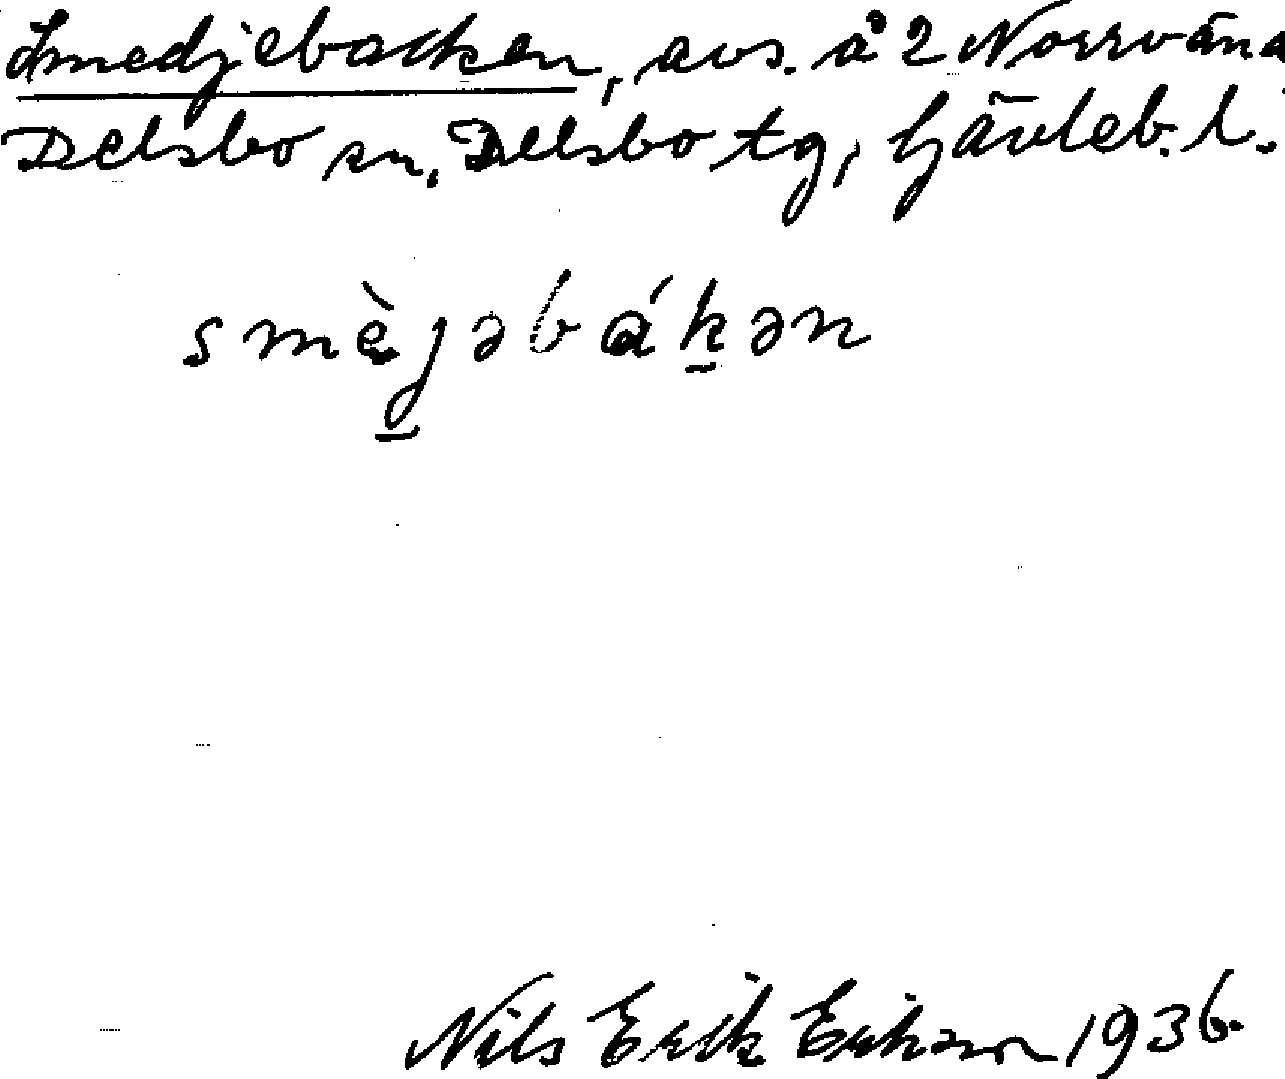 Smedjebacken, avs. å 2 Norrväna
Delsbo sn, Delsbo tg, Gävleb. l.
smèjəbákən
Nils Erik Erikson 1936.